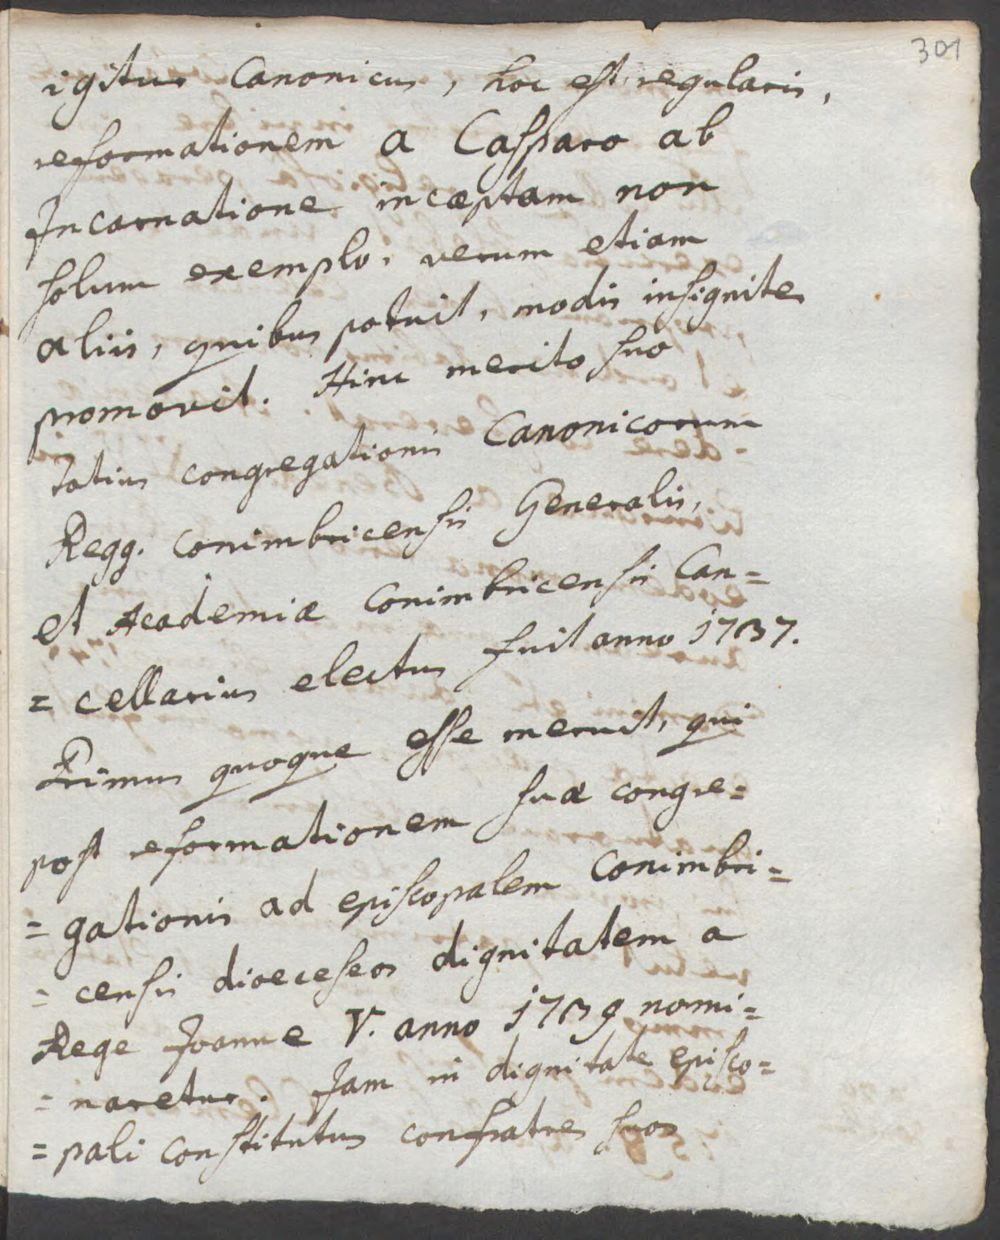 301
igitur Canonicus, hoc est regularis,
reformationem a Casparo ab
Incarnatione inceptam non
solum exemplo, verum etiam
aliis, quibus potuit, modis insigniter
promovit. Hinc merito suo
totius congregationis Canonicorum
Regg. Conimbricensis Generalis,
et Academiæ Conimbricensis Can=
=cellarius electus fuit anno 1737.
Primus quoque esse meruit, qui
post reformationem suæ congre=
=gationis ad episcopalem Conimbri=
=censis dioeceseos dignitatem a
Rege Joanne V. anno 1739 nomi=
=naretur. Jam in dignitate episco=
=pali constitutus confratres suos